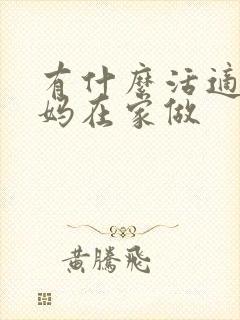 有什麼活適
妈在家做
黄騰飛